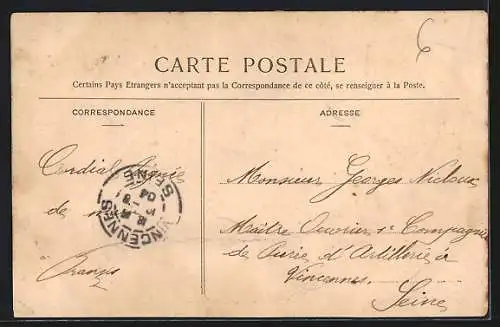 6
CARTE POSTALE
Certains Pays Etrangers n'acceptant pas la Correspondance de ce côté, se renseigner à la Poste.
CORRESPONDANCE
ADRESSE
Cordial
de
VINCENNES
SEINE
04
Monsieur Georges
Maître Ouvrier, 1e Compagnie
de d'Artillerie à
Vincennes.
Seine